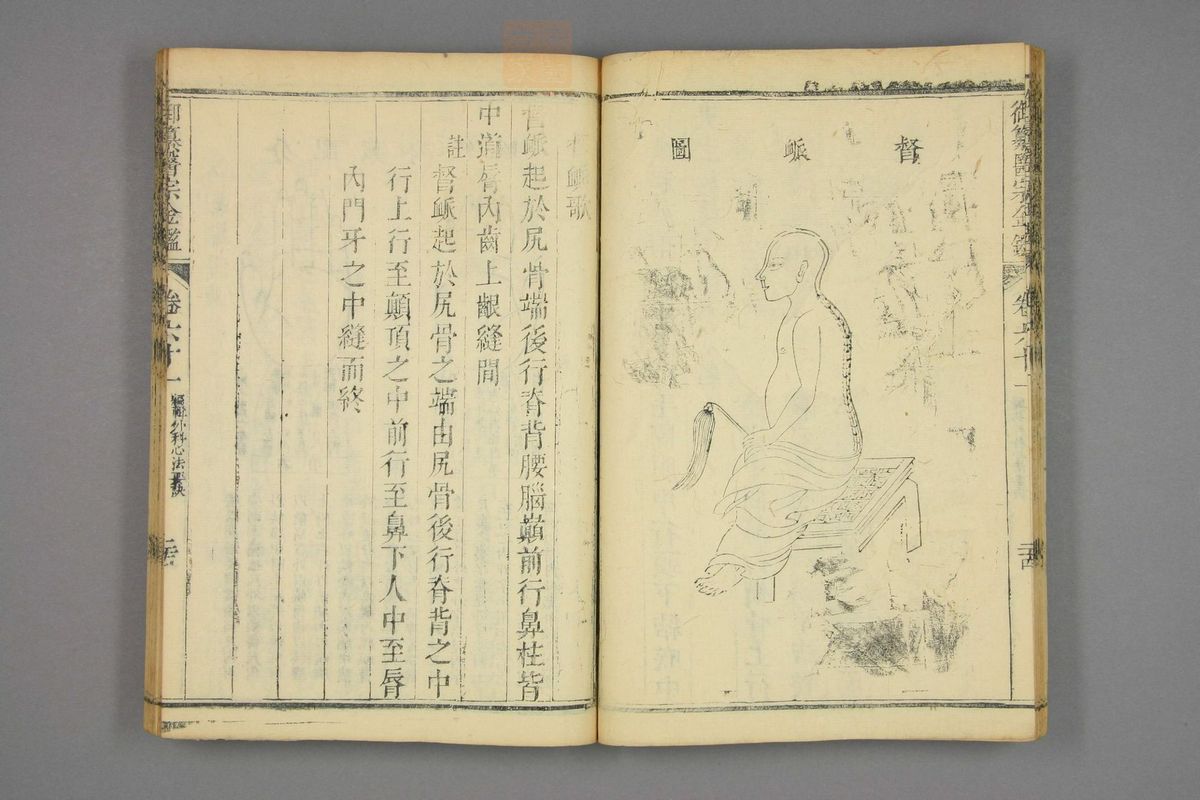 御纂醫宗金鑑
卷六十一
二十四
督脈圖
督脈歌
督脈起於尻骨端後行脊背腰腦巔前行鼻柱皆
中道脣內齒上齦縫間
註
督脈起於尻骨之端由尻骨後行脊背之中
行上行至顛頂之中前行至鼻下人中至脣
內門牙之中縫而終
御纂醫宗金鑑
卷六十一
編輯外科心法要訣